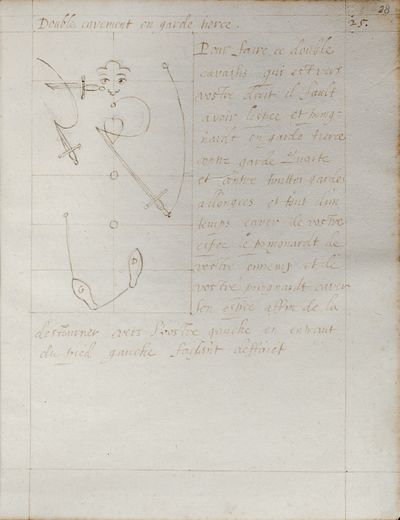 28
25.
Double cavement en garde tierce.
Pour faire ce double
cavation qui est vers
vostre droit il fault
avoir lespee et poing-
nardt en garde tierce
contre garde quarte
et contre touttes gardes
allongies et tout dun
temps caver de vostre
espee le poingnardt de
vostre ennemy et de
vostre poingnardt caver
son espee affin de la
destourner vers vostre gauche en entrant
du pied gauche faisant
G
D